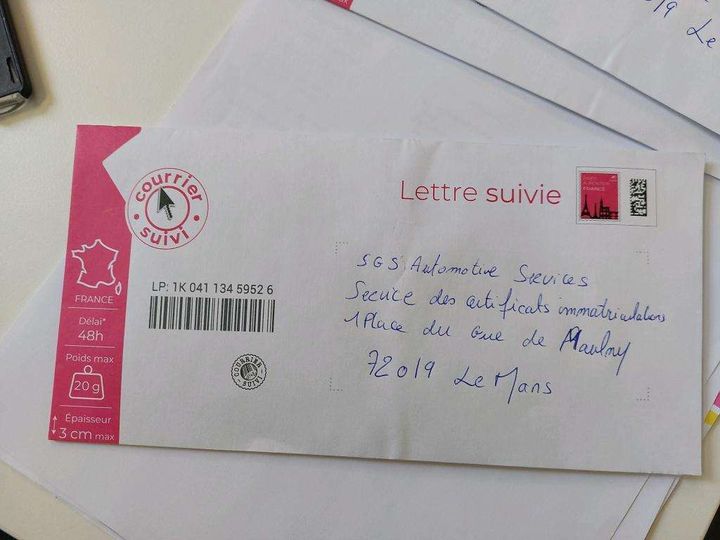 courrier
suivi
Lettre suivie
FRANCE
FRANCE
Délai*
48h
Poids max
20 g
Épaisseur
3 cm max
LP: 1K 041 134 5952 6
COURRIER
SUIVI
SGS Automotive Services
Service des certificats immatriculations
1 Place du Gue de Maulny
72019 Le Mans
019
Le